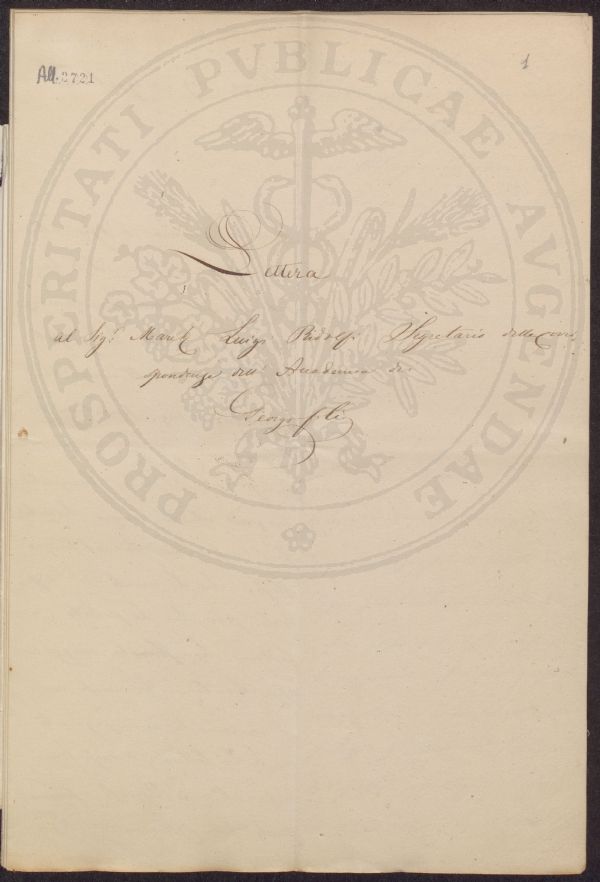 All. 2721
1
PROSPERITATI PVBLICAE AVGENDAE
Lettera
al Sig.r March. Luigi Ridolfi Segretario delle corri-
spondenze dell' Accademia dei
Georgofili